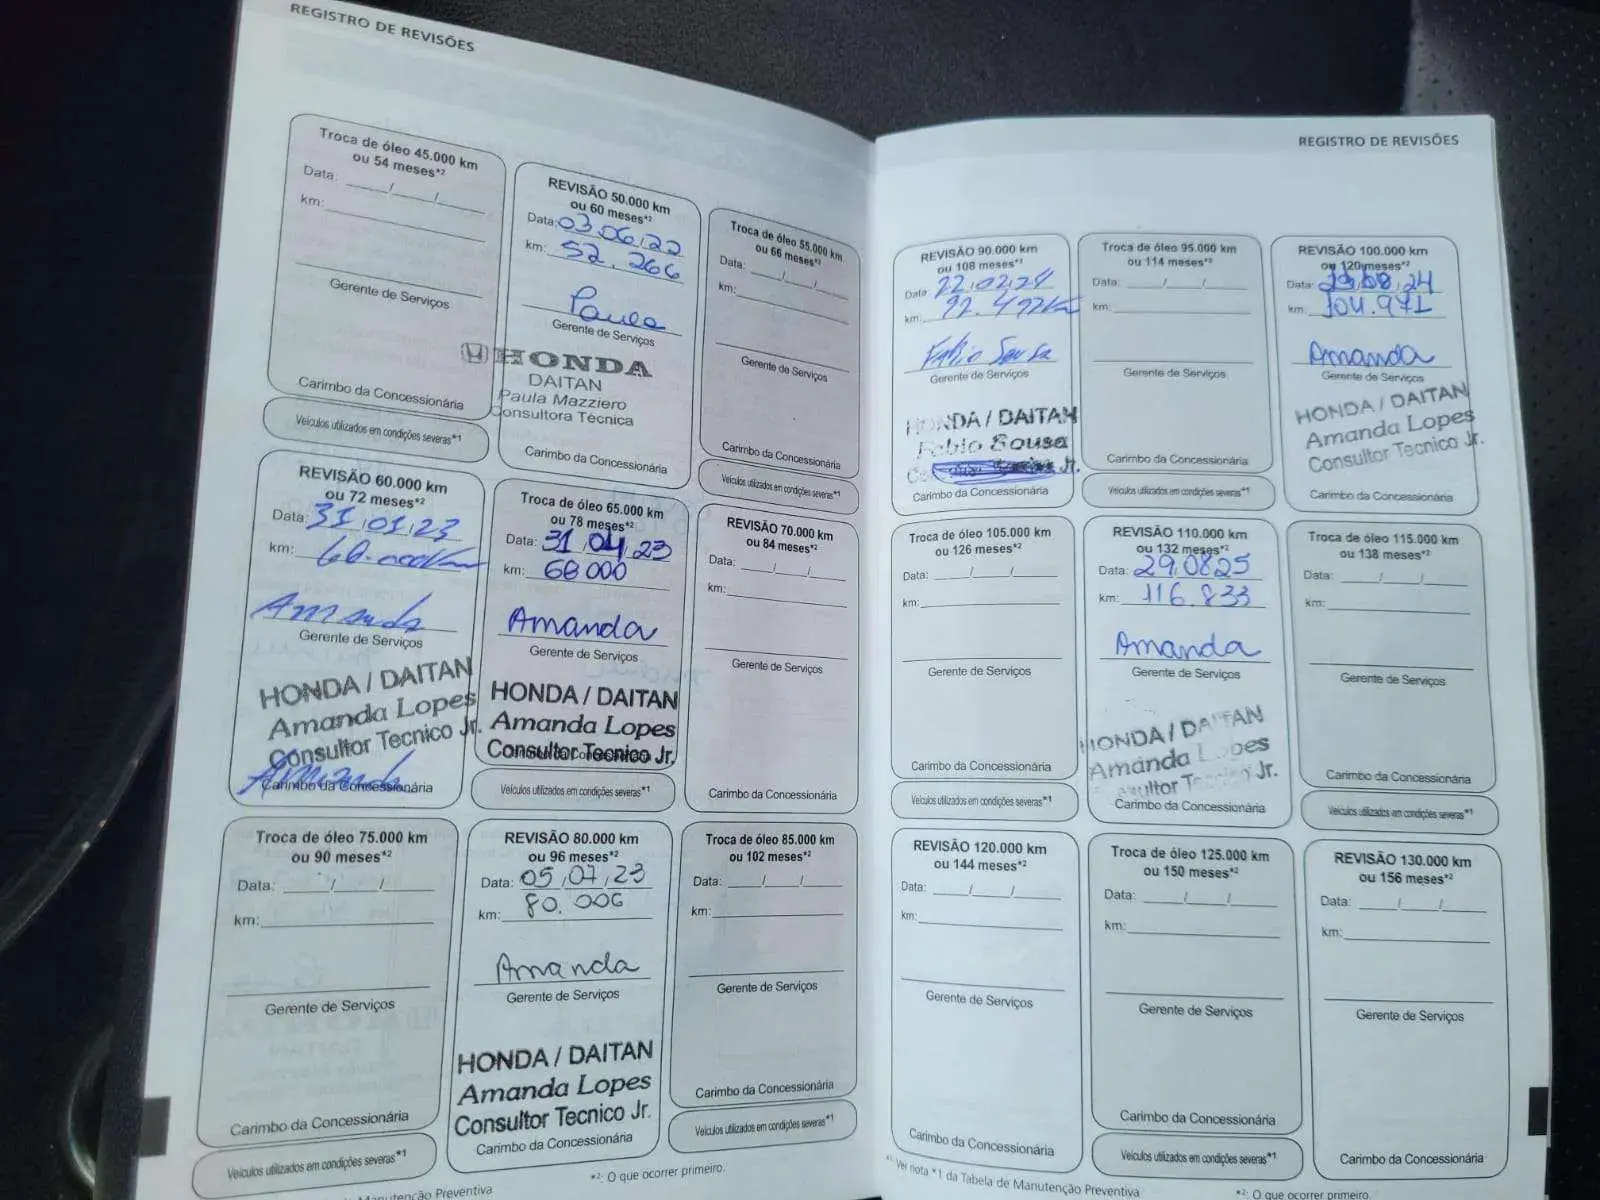 REGISTRO DE REVISÕES
Troca de óleo 45.000 km
ou 54 meses*²
Data: ___/___/___
km:
Gerente de Serviços
Carimbo da Concessionária
Veículos utilizados em condições severas*¹
REVISÃO 50.000 km
ou 60 meses*²
Data: 03/06/22
km: 52.266
Paula
Gerente de Serviços
HONDA
DAITAN
Paula Mazziero
Consultora Técnica
Carimbo da Concessionária
Troca de óleo 55.000 km
ou 66 meses*²
Data: ___/___/___
km:
Gerente de Serviços
Carimbo da Concessionária
Veículos utilizados em condições severas*¹
REVISÃO 60.000 km
ou 72 meses*²
Data: 31/01/23
km: 60.000km
Amanda
Gerente de Serviços
HONDA / DAITAN
Amanda Lopes
Consultor Tecnico Jr.
Amanda
Carimbo da Concessionária
Troca de óleo 65.000 km
ou 78 meses*²
Data: 31/04/23
km: 68000
Amanda
Gerente de Serviços
HONDA / DAITAN
Amanda Lopes
Consultor Tecnico Jr.
Carimbo da Concessionária
Veículos utilizados em condições severas*¹
REVISÃO 70.000 km
ou 84 meses*²
Data: ___/___/___
km:
Gerente de Serviços
Carimbo da Concessionária
Troca de óleo 75.000 km
ou 90 meses*²
Data: ___/___/___
km:
Gerente de Serviços
Carimbo da Concessionária
Veículos utilizados em condições severas*¹
REVISÃO 80.000 km
ou 96 meses*²
Data: 05/07/23
km: 80.006
Amanda
Gerente de Serviços
HONDA / DAITAN
Amanda Lopes
Consultor Tecnico Jr.
Carimbo da Concessionária
Troca de óleo 85.000 km
ou 102 meses*²
Data: ___/___/___
km:
Gerente de Serviços
Carimbo da Concessionária
Veículos utilizados em condições severas*¹
Manutenção Preventiva
*²: O que ocorrer primeiro.
REGISTRO DE REVISÕES
REVISÃO 90.000 km
ou 108 meses*²
Data: 22/02/24
km:
Fabio Sousa
Gerente de Serviços
HONDA / DAITAN
Fabio Sousa
Jr.
Carimbo da Concessionária
Troca de óleo 95.000 km
ou 114 meses*²
Data: ___/___/___
km:
Gerente de Serviços
Carimbo da Concessionária
Veículos utilizados em condições severas*¹
REVISÃO 100.000 km
ou 120 meses*²
Data: /08/24
km: 104.971
Amanda
Gerente de Serviços
HONDA / DAITAN
Amanda Lopes
Consultor Tecnico Jr.
Carimbo da Concessionária
Troca de óleo 105.000 km
ou 126 meses*²
Data: ___/___/___
km:
Gerente de Serviços
Carimbo da Concessionária
Veículos utilizados em condições severas*¹
REVISÃO 110.000 km
ou 132 meses*²
Data: 29/08/25
km: 116.833
Amanda
Gerente de Serviços
HONDA / DAITAN
Amanda Lopes
Consultor Tecnico Jr.
Carimbo da Concessionária
Troca de óleo 115.000 km
ou 138 meses*²
Data: ___/___/___
km:
Gerente de Serviços
Carimbo da Concessionária
Veículos utilizados em condições severas*¹
REVISÃO 120.000 km
ou 144 meses*²
Data: ___/___/___
km:
Gerente de Serviços
Carimbo da Concessionária
Troca de óleo 125.000 km
ou 150 meses*²
Data: ___/___/___
km:
Gerente de Serviços
Carimbo da Concessionária
Veículos utilizados em condições severas*¹
REVISÃO 130.000 km
ou 156 meses*²
Data: ___/___/___
km:
Gerente de Serviços
Carimbo da Concessionária
*¹ Ver nota *1 da Tabela de Manutenção Preventiva
*²: O que ocorrer primeiro.